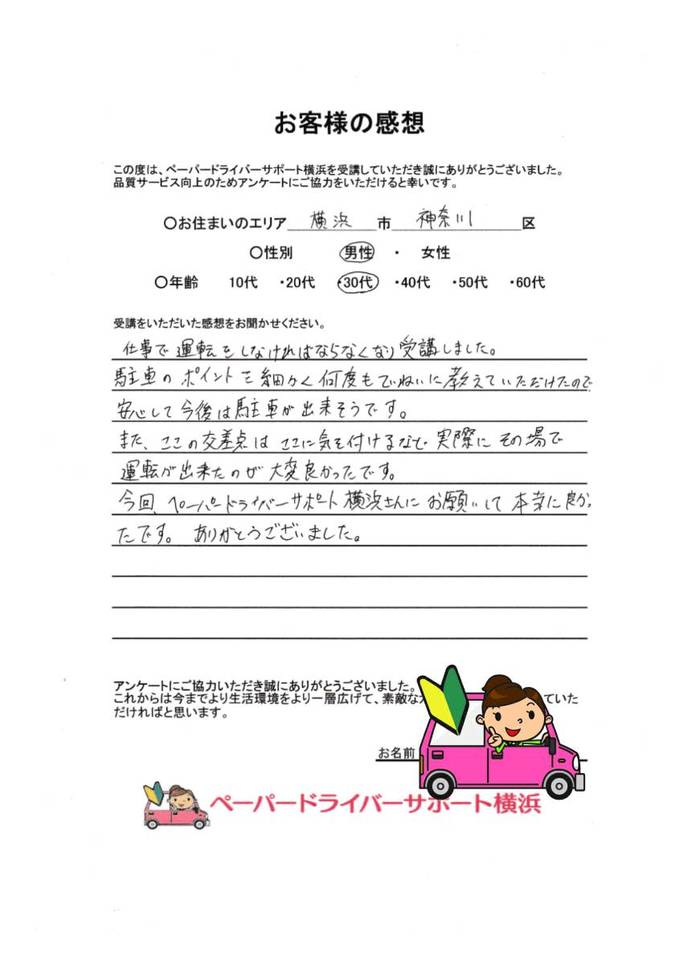 お客様の感想
この度は、ペーパードライバーサポート横浜を受講していただき誠にありがとうございました。
品質サービス向上のためアンケートにご協力をいただけると幸いです。
○お住まいのエリア 横浜 市 神奈川 区
○性別 男性 ・ 女性
○年齢 10代 ・20代 ・30代 ・40代 ・50代 ・60代
受講をいただいた感想をお聞かせください。
仕事で運転をしなければならなくなり受講しました。
駐車のポイントを細かく何度もていねいに教えていただけたので
安心して今後は駐車が出来そうです。
また、ここの交差点はここに気を付けるなど実際にその場で
運転が出来たのが大変良かったです。
今回、ペーパードライバーサポート横浜さんにお願いして本当に良かっ
たです。ありがとうございました。
アンケートにご協力いただき誠にありがとうございました。
これからは今までより生活環境をより一層広げて、素敵な ていた
だければと思います。
お名前
ペーパードライバーサポート横浜